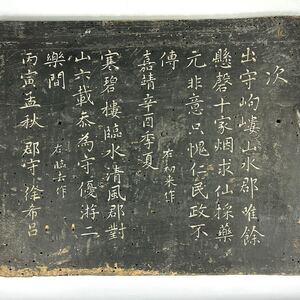 次
出守岣嶁山水郡唯餘
懸磬十家烟求仙採藥
元非意只愧仁民政不
傳
右初來作
嘉靖辛酉季夏
寒碧樓臨水清風郡對
山六載忝為守優游二
樂間
右臨去作
丙寅孟秋 郡守 徐希呂